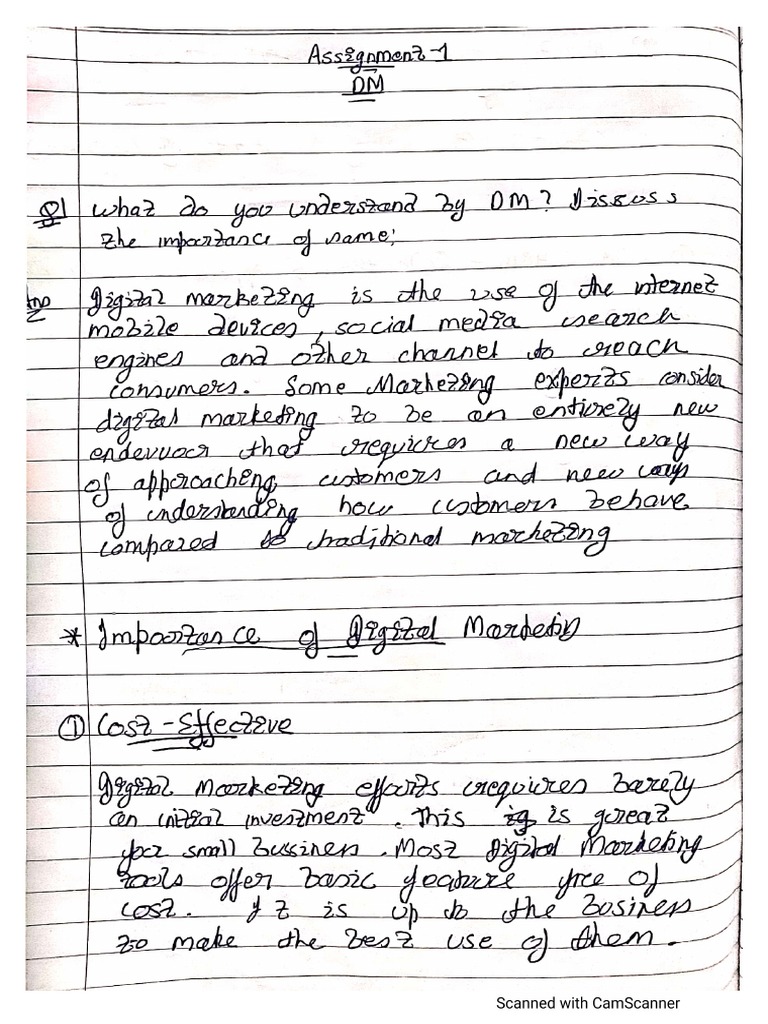 Assignment-1
DM
Q1 What do you understand by DM? Discuss
the importance of same;
Ans Digital marketing is the use of the internet
mobile devices, social media search
engines and other channel to reach
consumers. Some Marketing experts consider
digital marketing to be an entirely new
endevuor that requires a new way
of approaching customers and new ways
of understanding how customers behave
compared to traditional marketing
* Importance of Digital Marketing
① Cost-Effective
Digital Marketing efforts requires barely
an initial investment. This is great
for small bussiness. Most Digital Marketing
tools offer basic feature free of
cost. It is up to the business
to make the best use of them.
Scanned with CamScanner